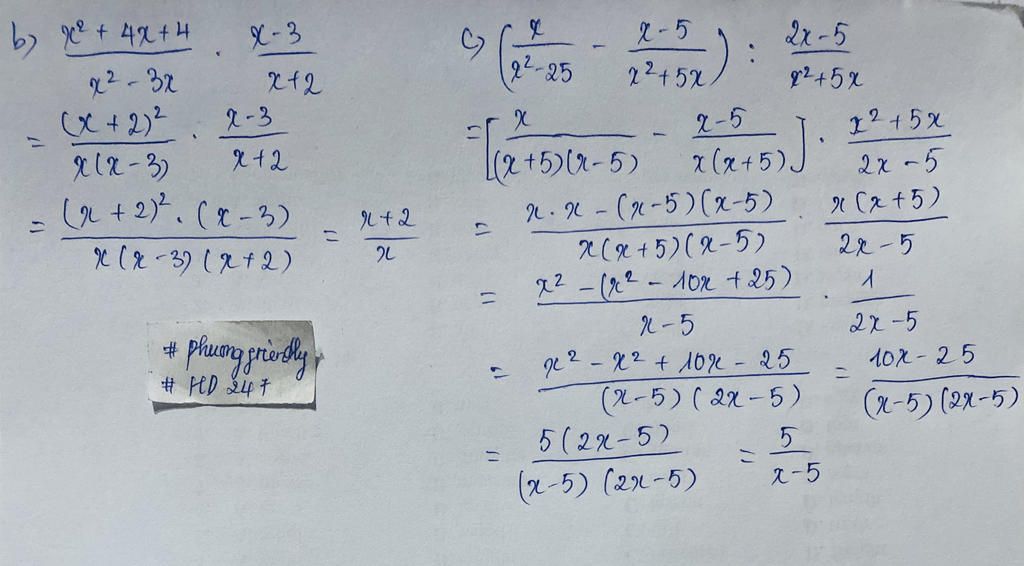 b) (x² + 4x + 4)/(x² - 3x) . (x - 3)/(x + 2)
= (x + 2)²/(x(x - 3)) . (x - 3)/(x + 2)
= ((x + 2)² . (x - 3))/(x(x - 3)(x + 2)) = (x + 2)/x
# phuongfriendly
# HD 247
c) (x/(x² - 25) - (x - 5)/(x² + 5x)) : (2x - 5)/(x² + 5x)
= [x/((x + 5)(x - 5)) - (x - 5)/(x(x + 5))] . (x² + 5x)/(2x - 5)
= (x . x - (x - 5)(x - 5))/(x(x + 5)(x - 5)) . (x(x + 5))/(2x - 5)
= (x² - (x² - 10x + 25))/(x - 5) . 1/(2x - 5)
= (x² - x² + 10x - 25)/((x - 5)(2x - 5)) = (10x - 25)/((x - 5)(2x - 5))
= (5(2x - 5))/((x - 5)(2x - 5)) = 5/(x - 5)